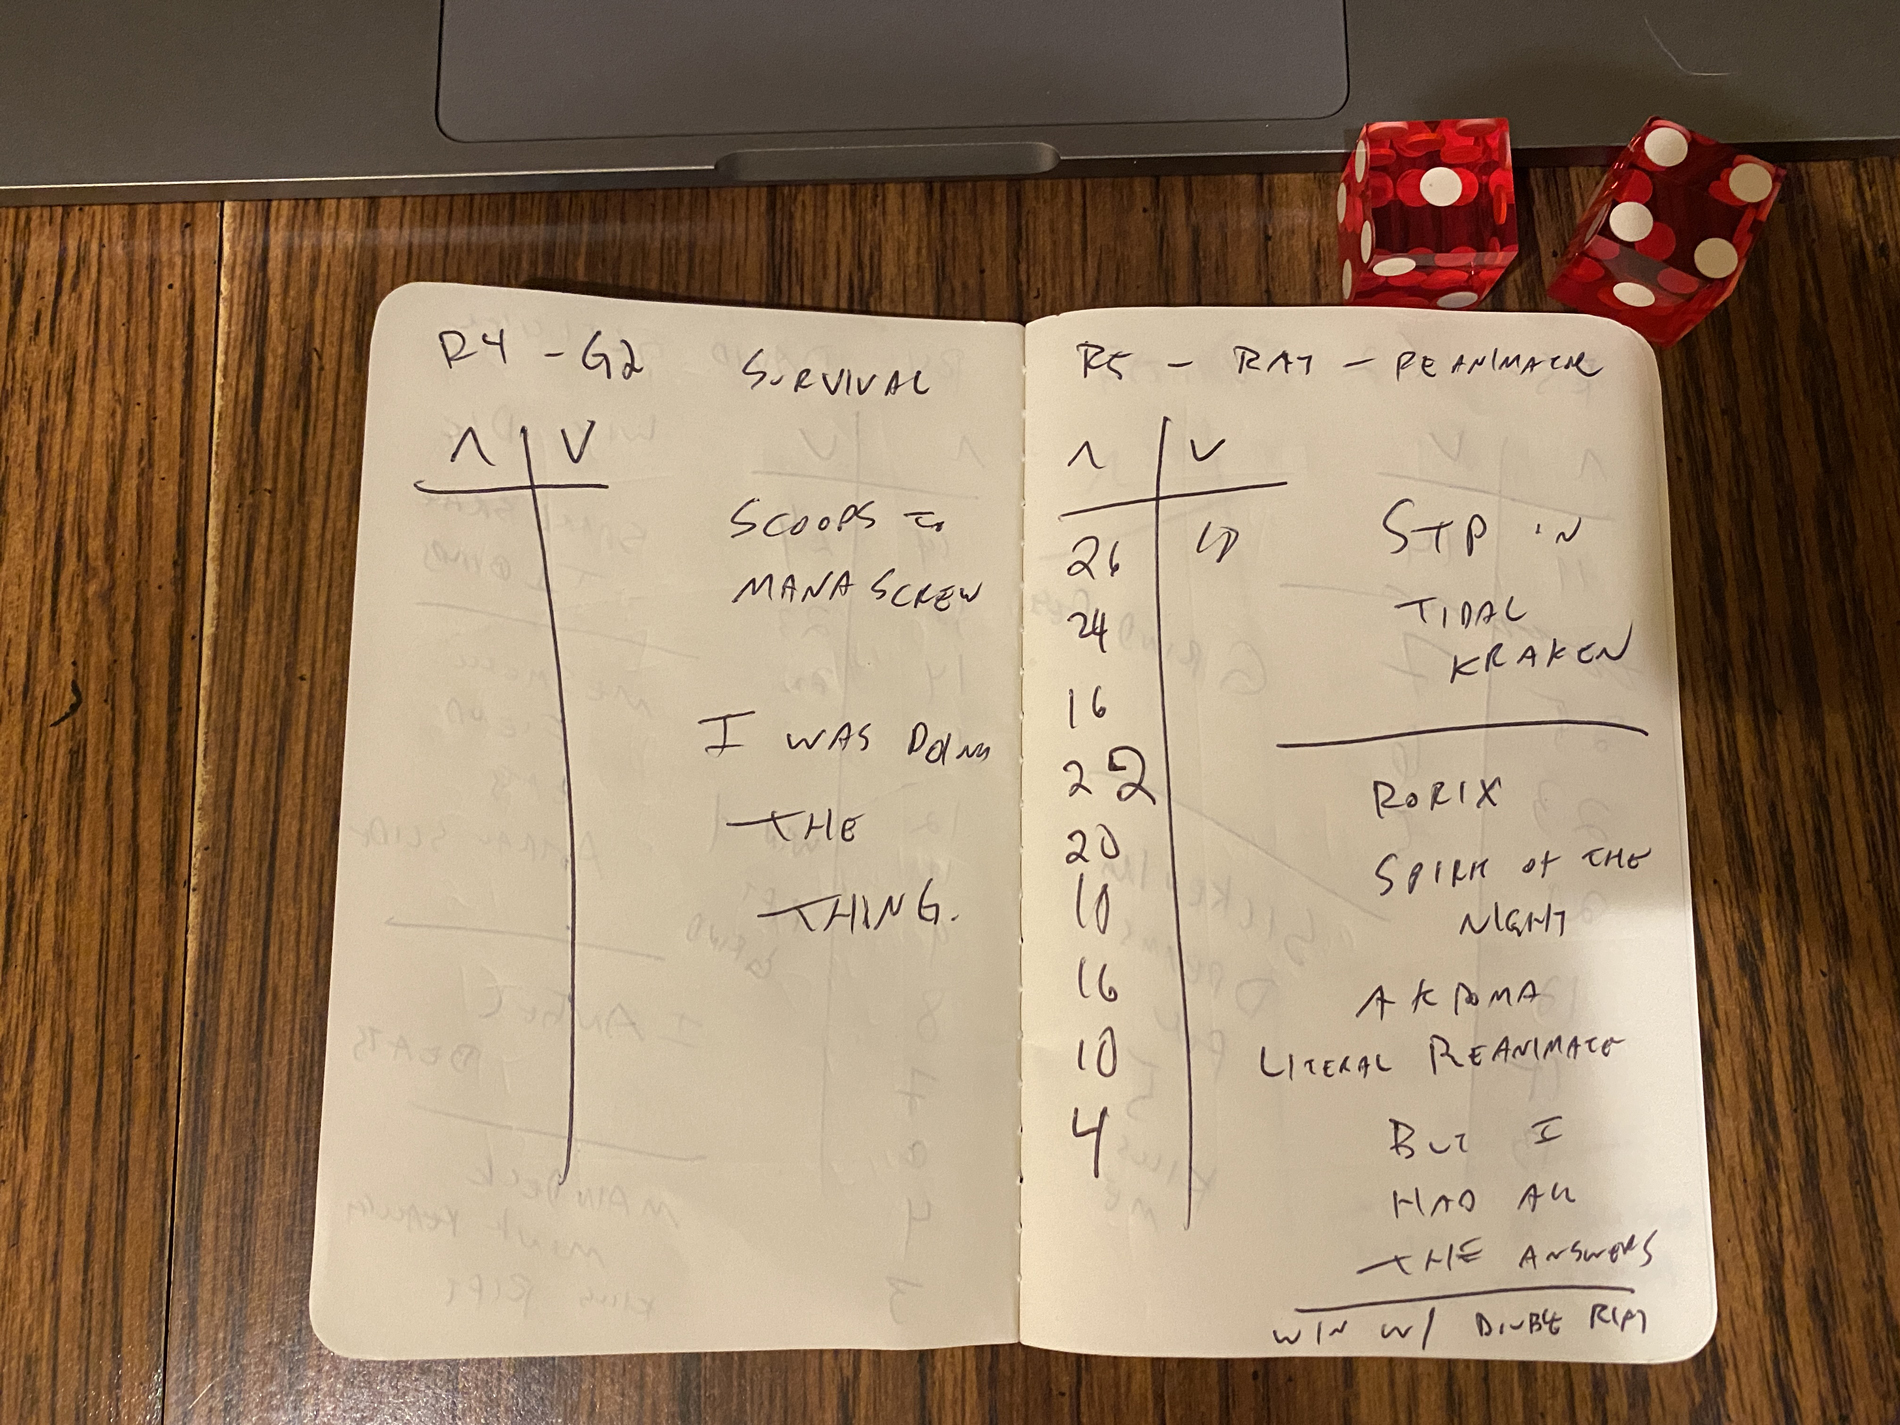 R4 - G2 SURVIVAL
Λ V
SCOOPS TO
MANA SCREW
I WAS DOING
THE
THING.
R5 - RAT - REANIMATOR
Λ V
26
24
16
22
20
10
16
10
4
STP IN
TIDAL
KRAKEN
RORIX
SPIRIT OF THE
NIGHT
AKROMA
LITERAL REANIMATE
BUT I
HAD ALL
THE ANSWERS
WIN W/ DOUBLE RIFT